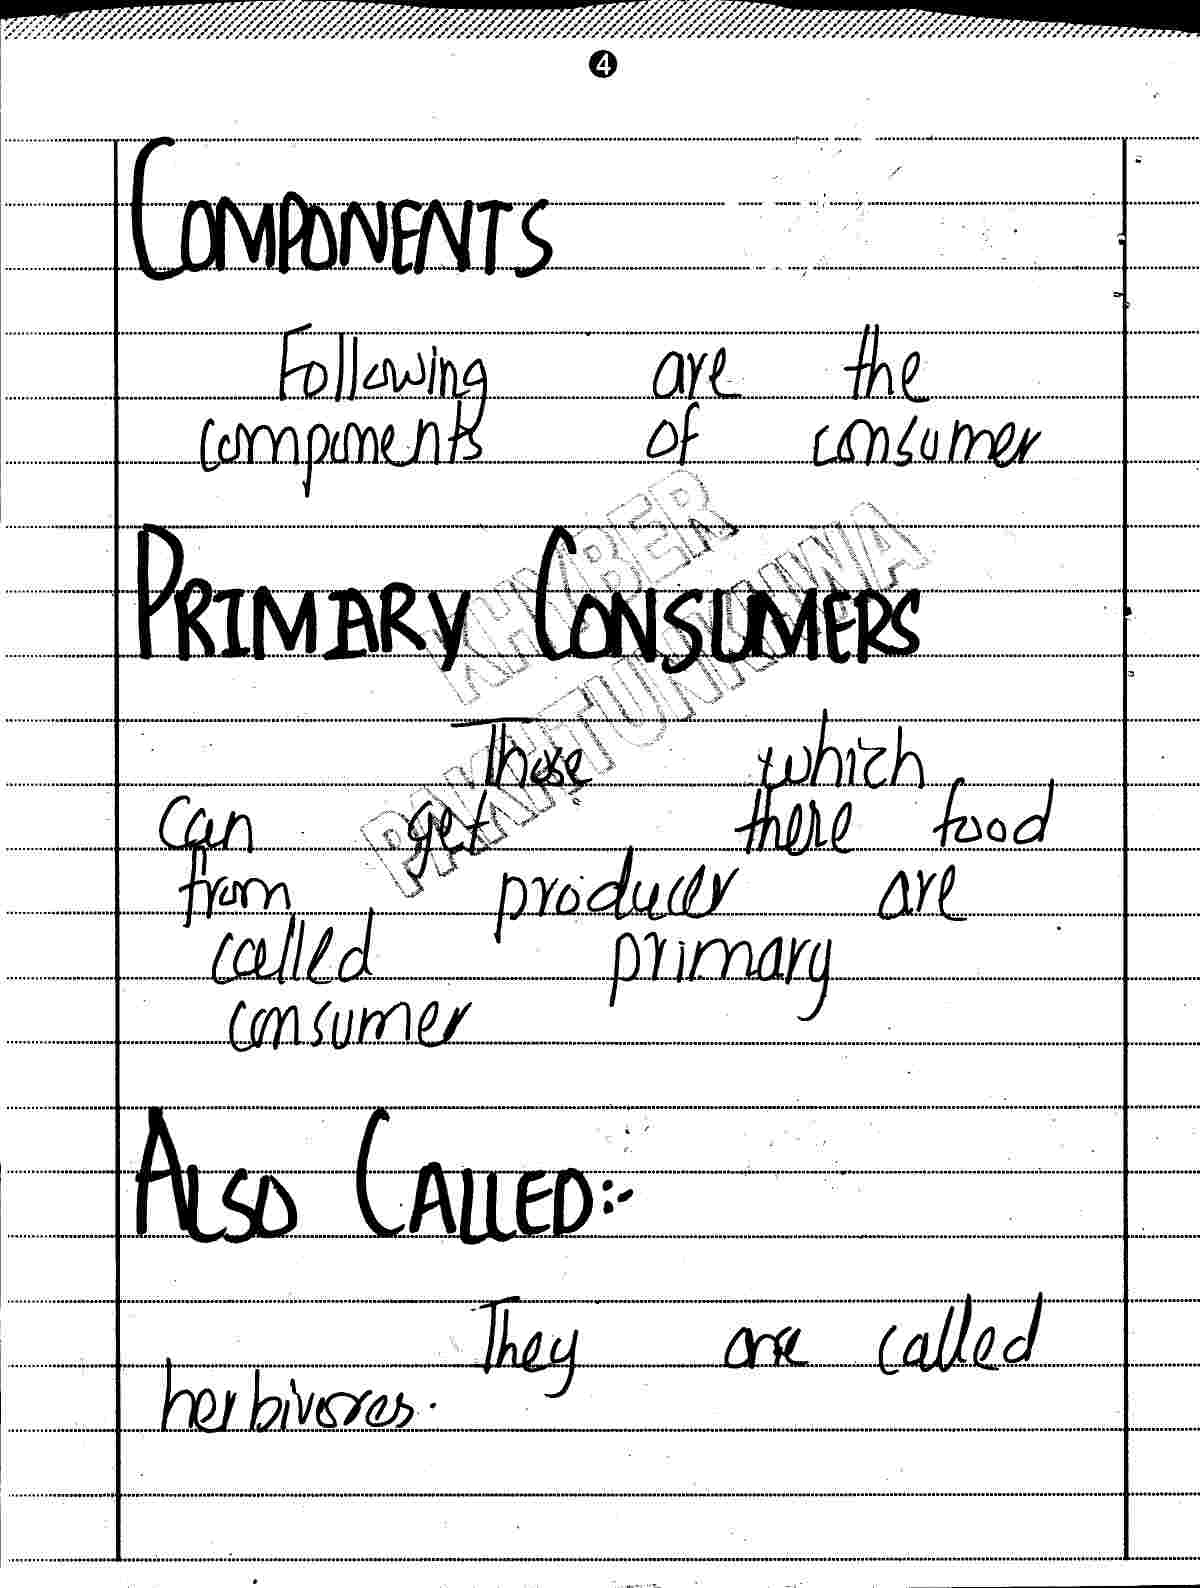 4
COMPONENTS
Following are the
components of consumer
KHYBER
PAKHTUNKHWA
PRIMARY CONSUMERS
Those which
can get there food
from producer are
called primary
consumer
ALSO CALLED:-
They are called
herbivores.